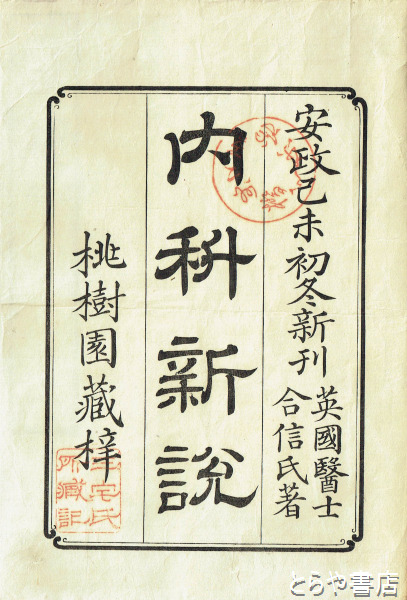 安政己未初冬新刊
英國醫士
合信氏著
內科新說
桃樹園藏梓
三宅氏
所藏記
とらや書店